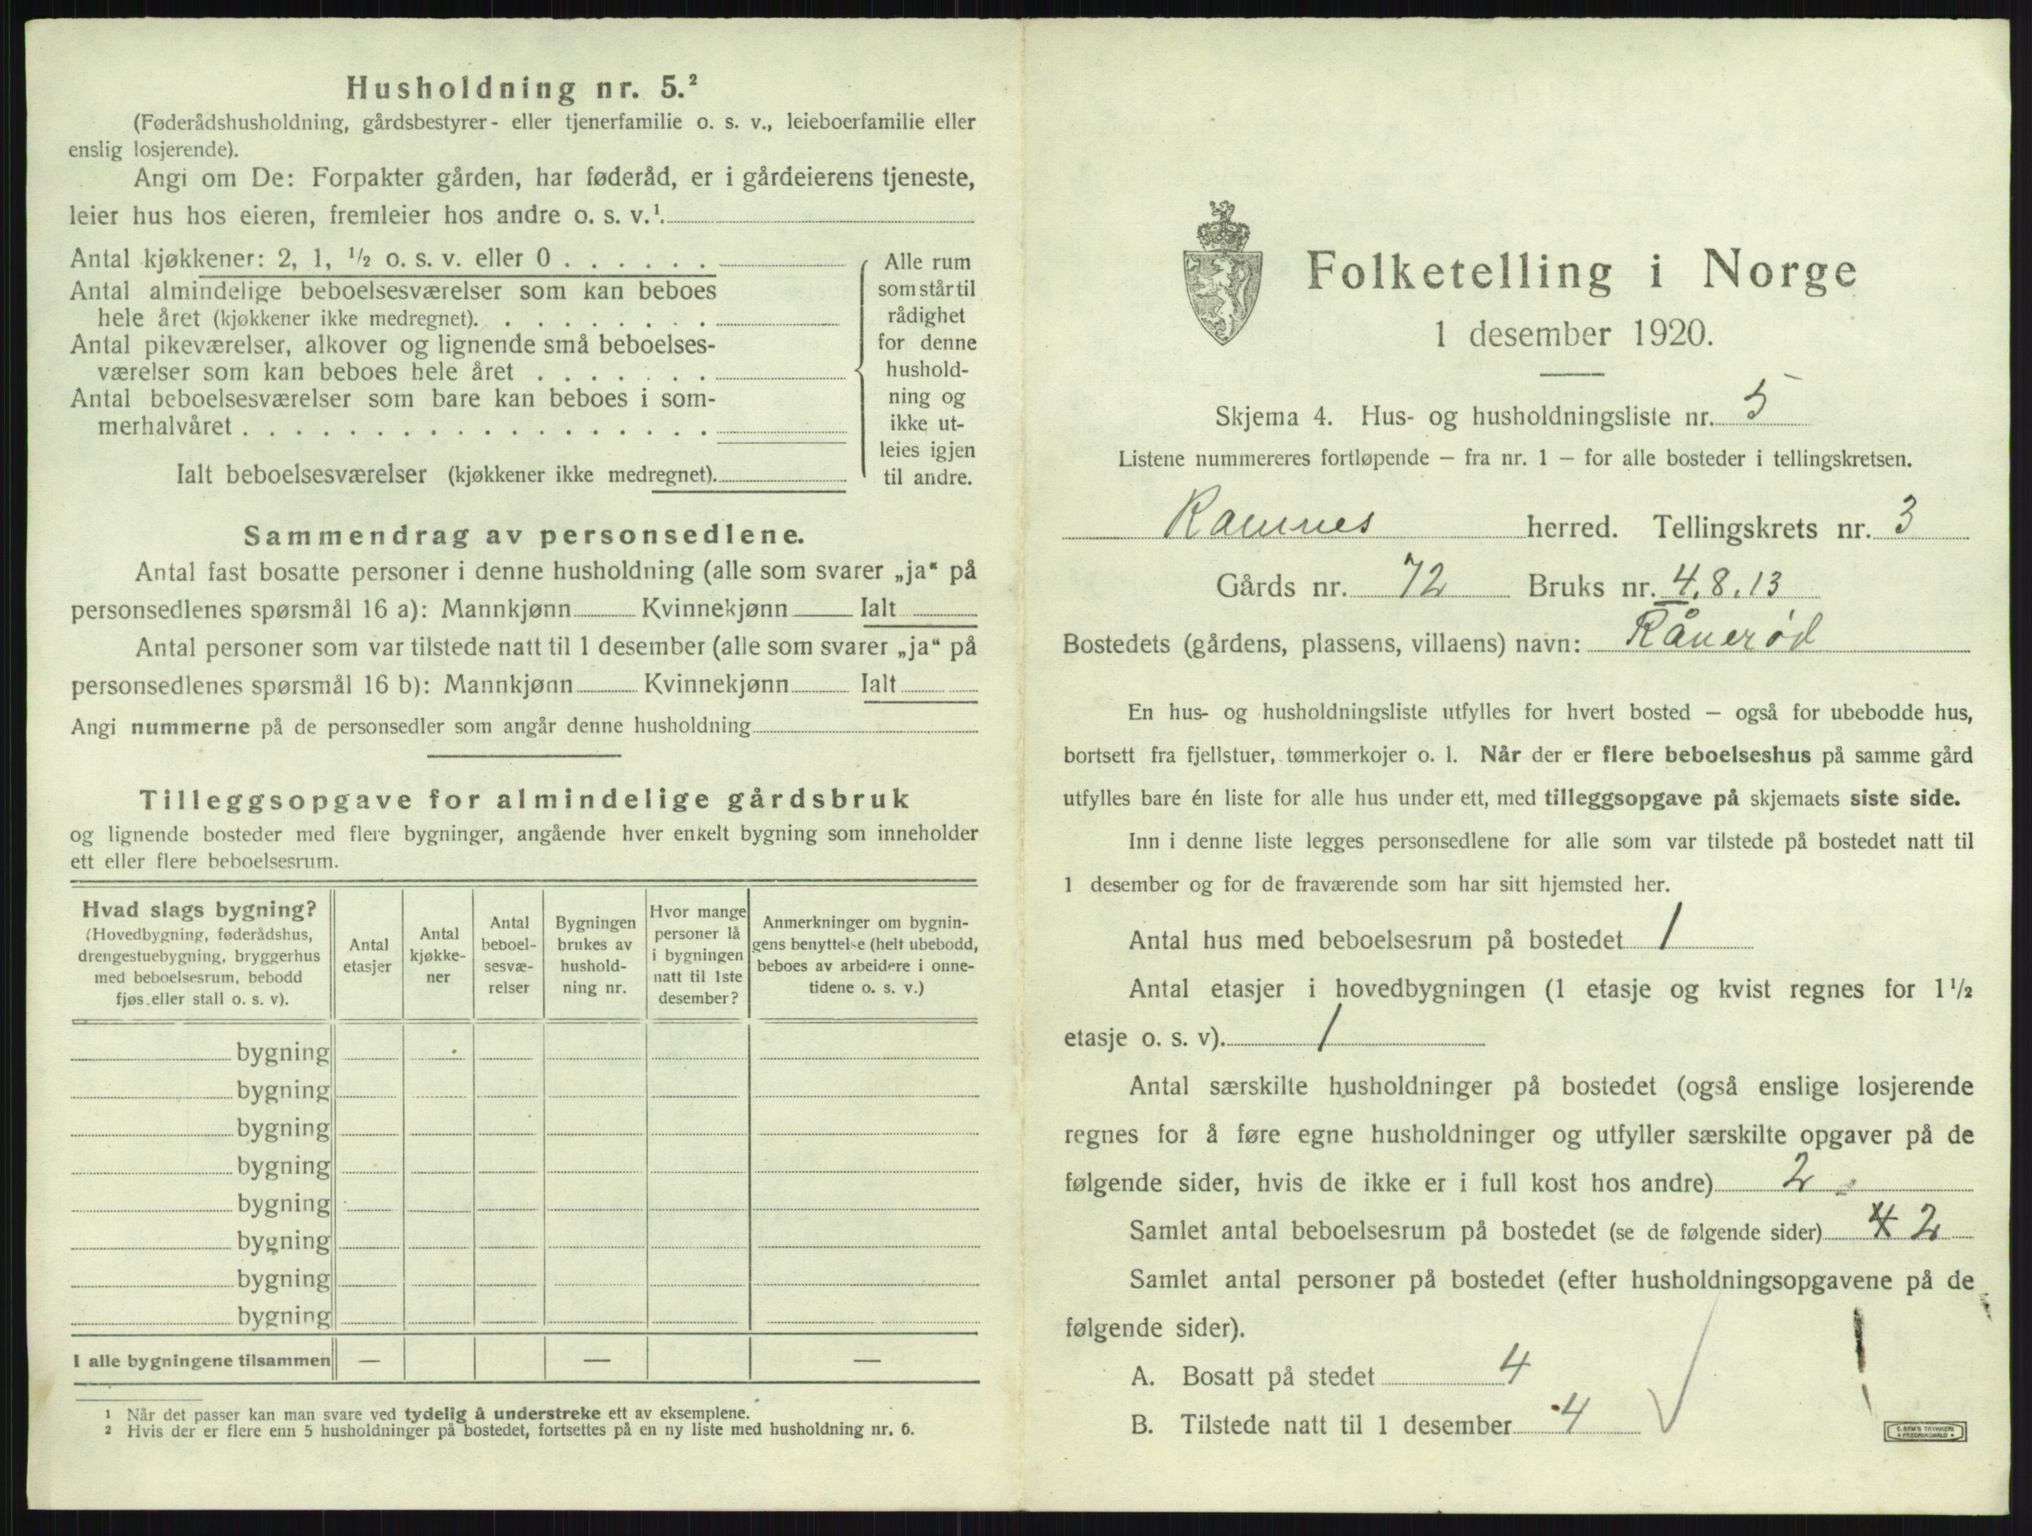 Husholdning nr. 5.²
(Føderådshusholdning, gårdsbestyrer- eller tjenerfamilie o. s. v., leieboerfamilie eller
enslig losjerende).
Angi om De: Forpakter gården, har føderåd, er i gårdeierens tjeneste,
leier hus hos eieren, fremleier hos andre o. s. v.¹
Antal kjøkkener: 2, 1, ½ o. s. v. eller 0 . . . . . .
Antal almindelige beboelsesværelser som kan beboes
hele året (kjøkkener ikke medregnet). . . . . . . . .
Antal pikeværelser, alkover og lignende små beboelses-
værelser som kan beboes hele året . . . . . . .
Antal beboelsesværelser som bare kan beboes i som-
merhalvåret . . . . . . . . . . . . . . . . . .
Ialt beboelsesværelser (kjøkkener ikke medregnet).
Alle rum
som står til
rådighet
for denne
hushold-
ning og
ikke ut-
leies igjen
til andre.
Sammendrag av personsedlene.
Antal fast bosatte personer i denne husholdning (alle som svarer „ja“ på
personsedlenes spørsmål 16 a): Mannkjønn Kvinnekjønn Ialt
Antal personer som var tilstede natt til 1 desember (alle som svarer „ja“ på
personsedlenes spørsmål 16 b): Mannkjønn Kvinnekjønn Ialt
Angi nummerne på de personsedler som angår denne husholdning
Tilleggsopgave for almindelige gårdsbruk
og lignende bosteder med flere bygninger, angående hver enkelt bygning som inneholder
ett eller flere beboelsesrum.
Hvad slags bygning?
(Hovedbygning, føderådshus,
drengestuebygning, bryggerhus
med beboelsesrum, bebodd
fjøs eller stall o. s. v).
Antal
etasjer
Antal
kjøkke-
ner
Antal
beboel-
sesvæ-
relser
Bygningen
brukes av
hushold-
ning nr.
Hvor mange
personer lå
i bygningen
natt til 1ste
desember?
Anmerkninger om bygnin-
gens benyttelse (helt ubebodd,
beboes av arbeidere i onne-
tidene o. s. v.)
bygning
bygning
bygning
bygning
bygning
bygning
bygning
bygning
I alle bygningene tilsammen — — —
¹ Når det passer kan man svare ved tydelig å understreke ett av eksemplene.
² Hvis der er flere enn 5 husholdninger på bostedet, fortsettes på en ny liste med husholdning nr. 6.
Folketelling i Norge
1 desember 1920.
Skjema 4. Hus- og husholdningsliste nr. 5
Listene nummereres fortløpende — fra nr. 1 — for alle bosteder i tellingskretsen.
Ramnes herred. Tellingskrets nr. 3
Gårds nr. 72 Bruks nr. 4, 8, 13
Bostedets (gårdens, plassens, villaens) navn: Rånerød
En hus- og husholdningsliste utfylles for hvert bosted — også for ubebodde hus,
bortsett fra fjellstuer, tømmerkojer o. l. Når der er flere beboelseshus på samme gård
utfylles bare én liste for alle hus under ett, med tilleggsopgave på skjemaets siste side.
Inn i denne liste legges personsedlene for alle som var tilstede på bostedet natt til
1 desember og for de fraværende som har sitt hjemsted her.
Antal hus med beboelsesrum på bostedet 1
Antal etasjer i hovedbygningen (1 etasje og kvist regnes for 1½
etasje o. s. v). 1
Antal særskilte husholdninger på bostedet (også enslige losjerende
regnes for å føre egne husholdninger og utfyller særskilte opgaver på de
følgende sider, hvis de ikke er i full kost hos andre) 2
Samlet antal beboelsesrum på bostedet (se de følgende sider) 4 2
Samlet antal personer på bostedet (efter husholdningsopgavene på de
følgende sider).
A. Bosatt på stedet 4
B. Tilstede natt til 1 desember 4